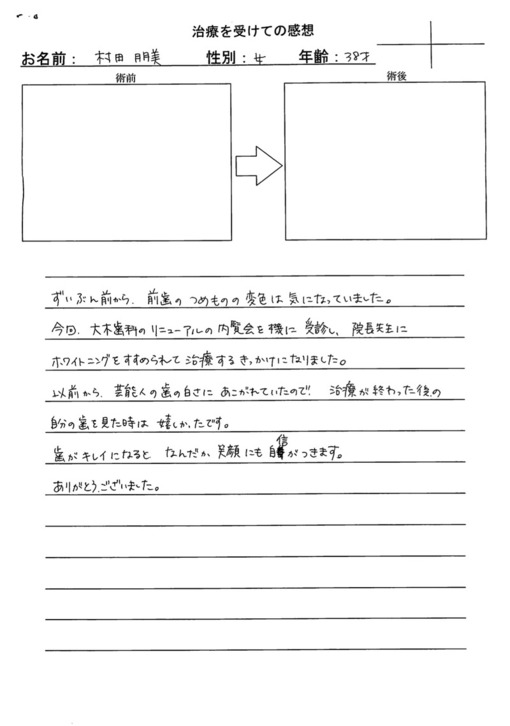 治療を受けての感想
お名前： 村田 朋美 性別：女 年齢：38才
術前 術後
ずいぶん前から、前歯の つめものの 変色は 気になっていました。
今回、大木歯科のリニューアルの内覧会を機に 受診し、院長先生に
ホワイトニングをすすめられて 治療する きっかけになりました。
以前から、芸能人の歯の白さに あこがれていたので、 治療が 終わった後の
自分の歯を見た時は 嬉しかったです。
歯が キレイになると なんだか 笑顔にも 自信がつきます。
ありがとうございました。